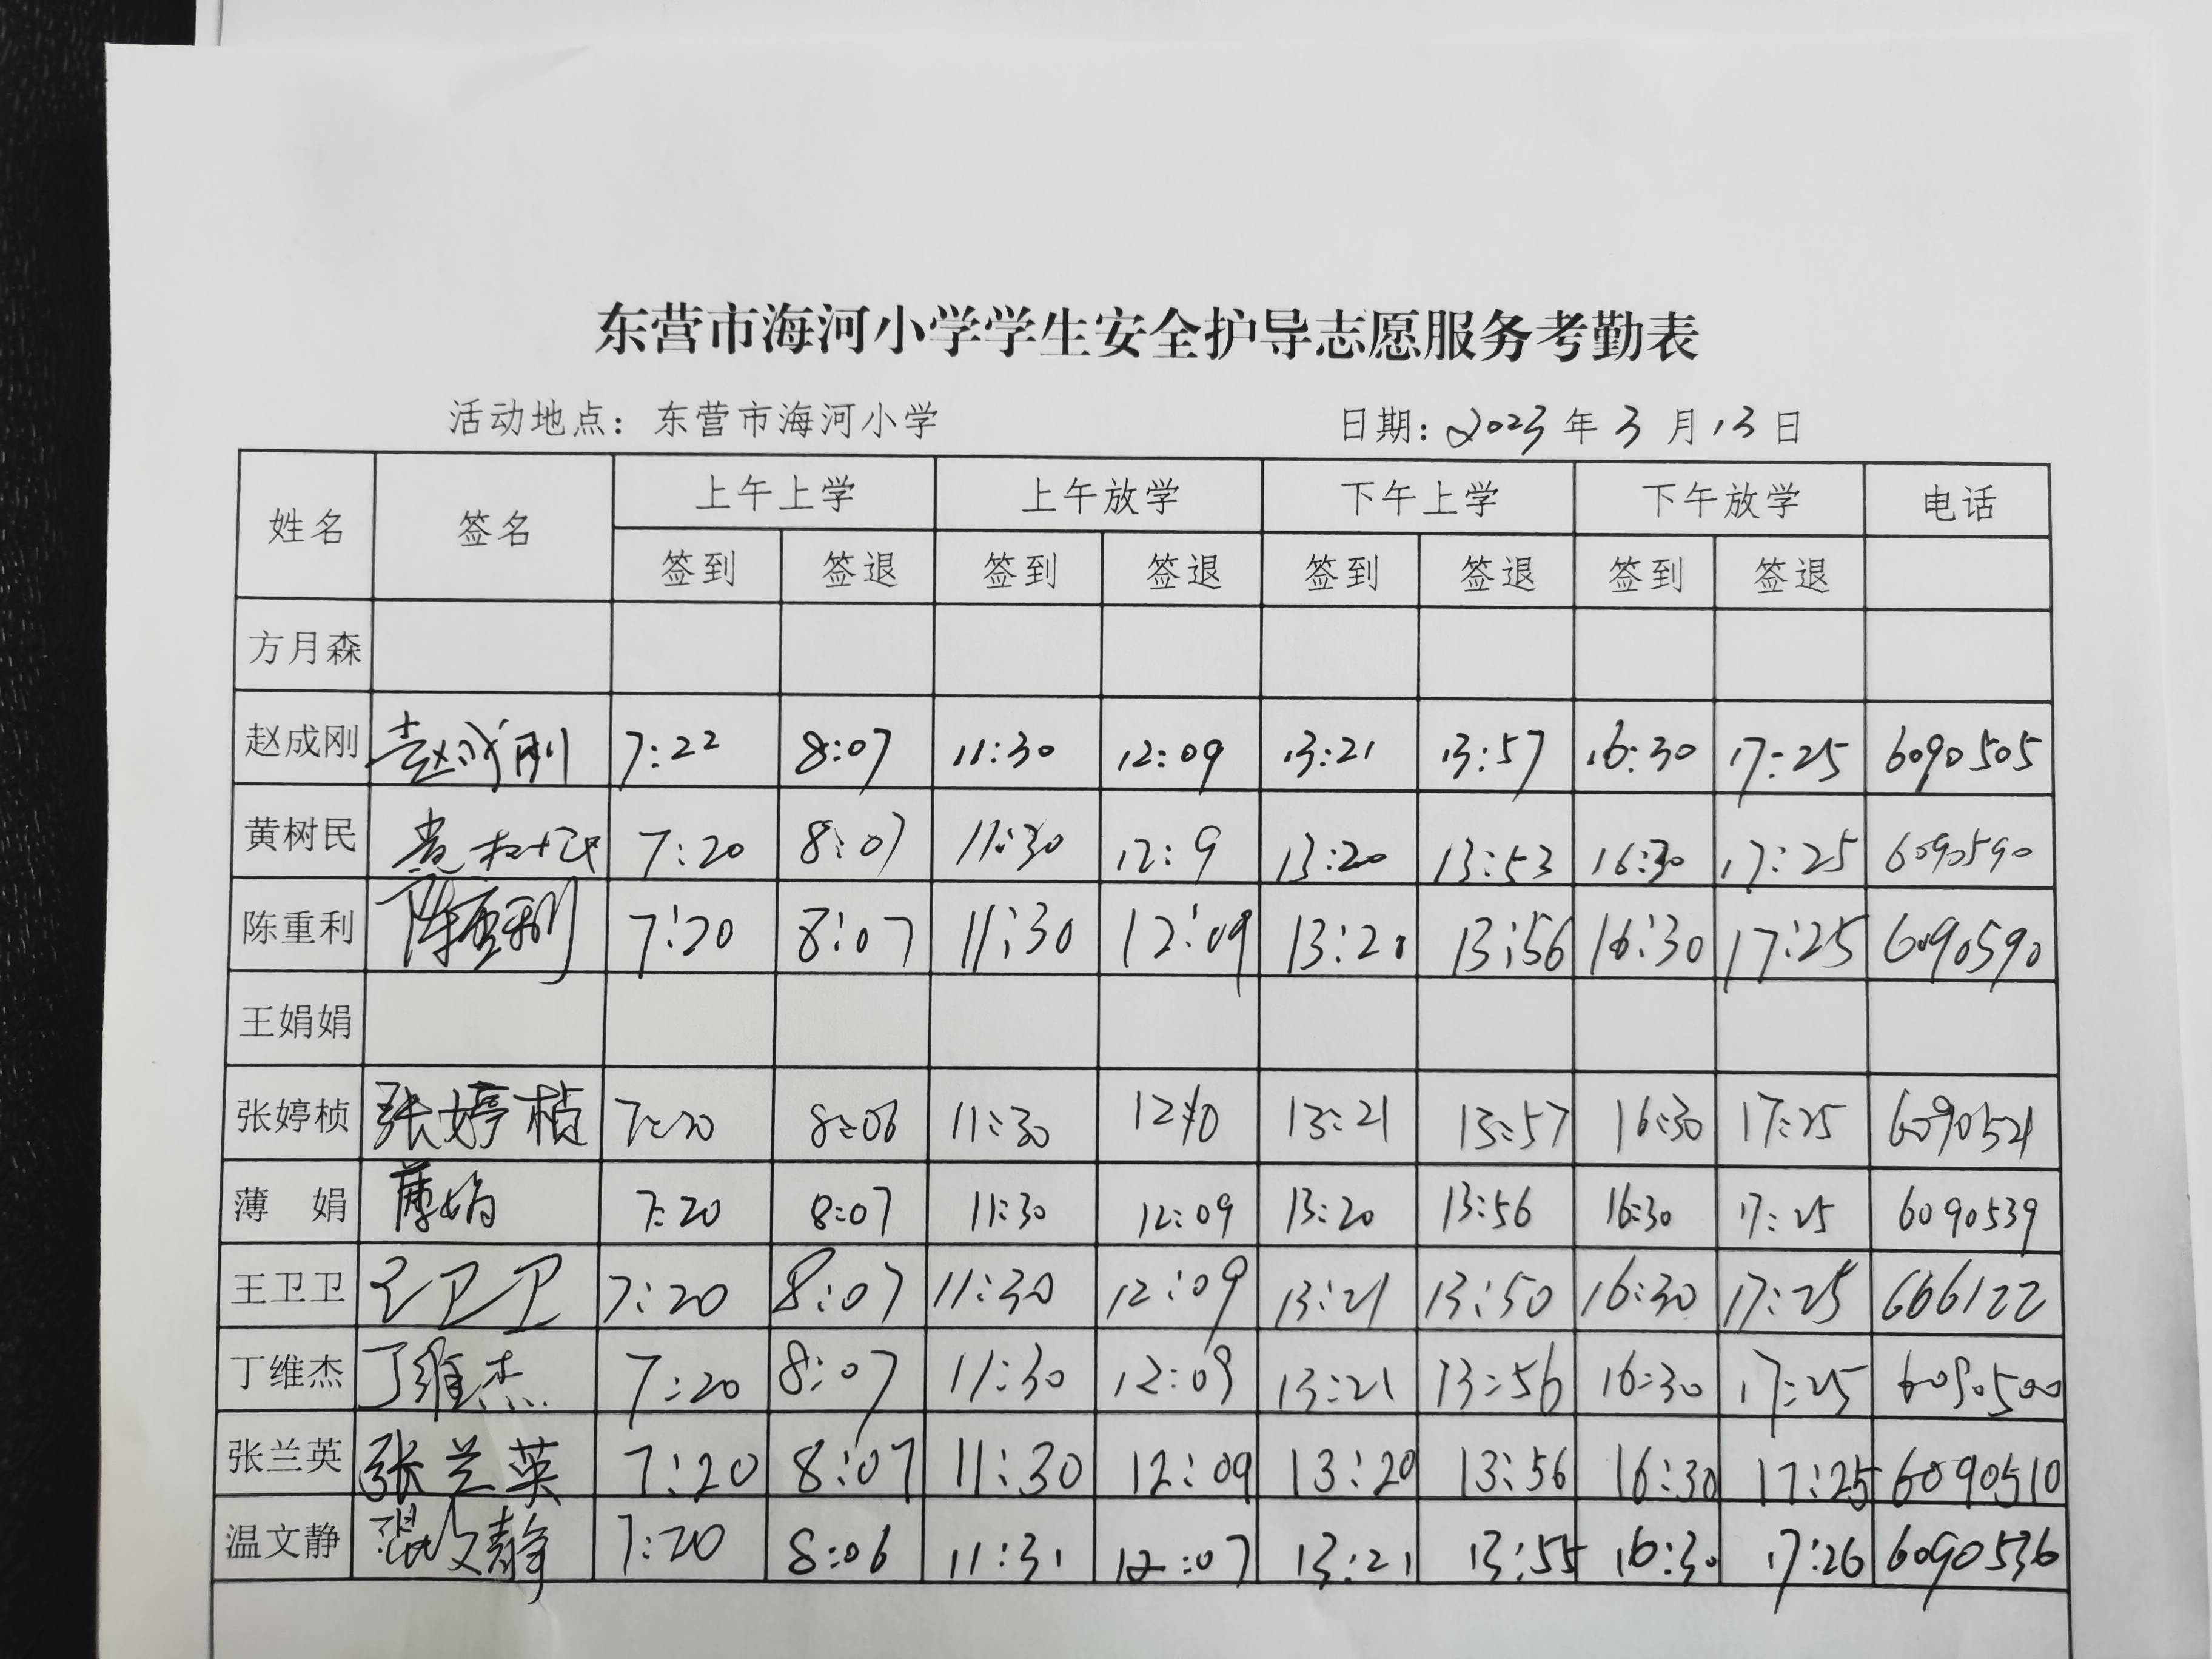 东营市海河小学学生安全护导志愿服务考勤表
活动地点：东营市海河小学 日期：2023年3月13日
姓名 签名 上午上学 上午放学 下午上学 下午放学 电话
签到 签退 签到 签退 签到 签退 签到 签退
方月森
赵成刚 赵成刚 7:22 8:07 11:30 12:09 13:21 13:57 16:30 17:25 6090505
黄树民 黄树民 7:20 8:07 11:30 12:9 13:20 13:53 16:30 17:25 6090590
陈重利 陈重利 7:20 8:07 11:30 12:09 13:20 13:56 16:30 17:25 6090590
王娟娟
张婷桢 张婷桢 7:20 8:06 11:30 12:10 13:21 13:57 16:30 17:25 6090521
薄 娟 薄娟 7:20 8:07 11:30 12:09 13:20 13:56 16:30 17:25 6090539
王卫卫 王卫卫 7:20 8:07 11:30 12:09 13:21 13:50 16:30 17:25 666122
丁维杰 丁维杰 7:20 8:07 11:30 12:09 13:21 13:56 16:30 17:25 6090500
张兰英 张兰英 7:20 8:07 11:30 12:09 13:20 13:56 16:30 17:25 6090510
温文静 温文静 7:20 8:06 11:31 12:07 13:21 13:55 16:30 17:26 6090536